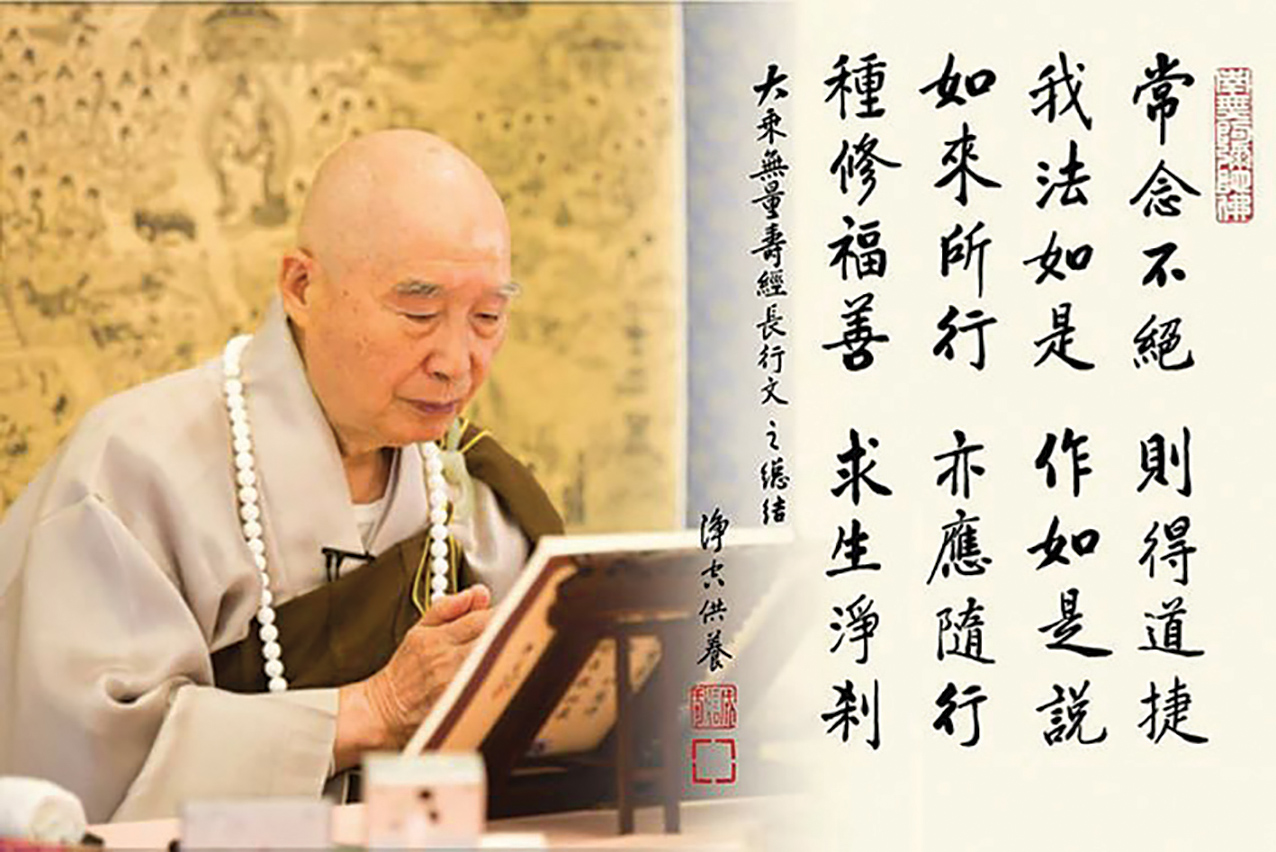 南無阿彌陀佛
常念不絕 則得道捷
我法如是 作如是說
如來所行 亦應隨行
種修福善 求生淨剎
大乘無量壽經長行文之總結
淨空供養